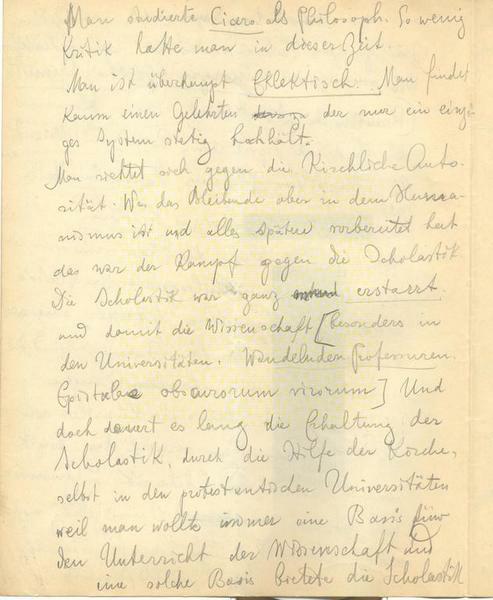 Man studierte Cicero als Philosoph. So wenig
Kritik hatte man in dieser Zeit.
Man ist überhaupt Eklektisch. Man findet
kaum einen Gelehrten der nur ein einzi-
ges System stetig hochhält.
Man richtet sich gegen die Kirchliche Auto-
rität. Was das Bleibende aber in dem Huma-
nismus ist und alles spätere vorbereitet hat
das war der Kampf gegen die Scholastik.
Die Scholastik war ganz erstarrt.
und damit die Wissenschaft [besonders in
den Universitäten. Wandelnden Professuren.
Epistolae obscurorum virorum] Und
doch dauert es lang die Erhaltung der
Scholastik, durch die Hilfe der Kirche,
selbst in den protestantischen Universitäten
weil man wollte immer eine Basis für
den Unterricht der Wissenschaft und
eine solche Basis bietete die Scholastik